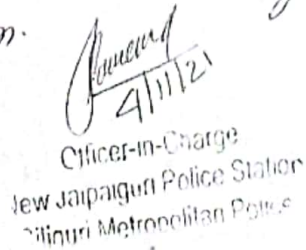 n.
4/11/21
Officer-in-Charge
New Jalpaiguri Police Station
Siliguri Metropolitan Police